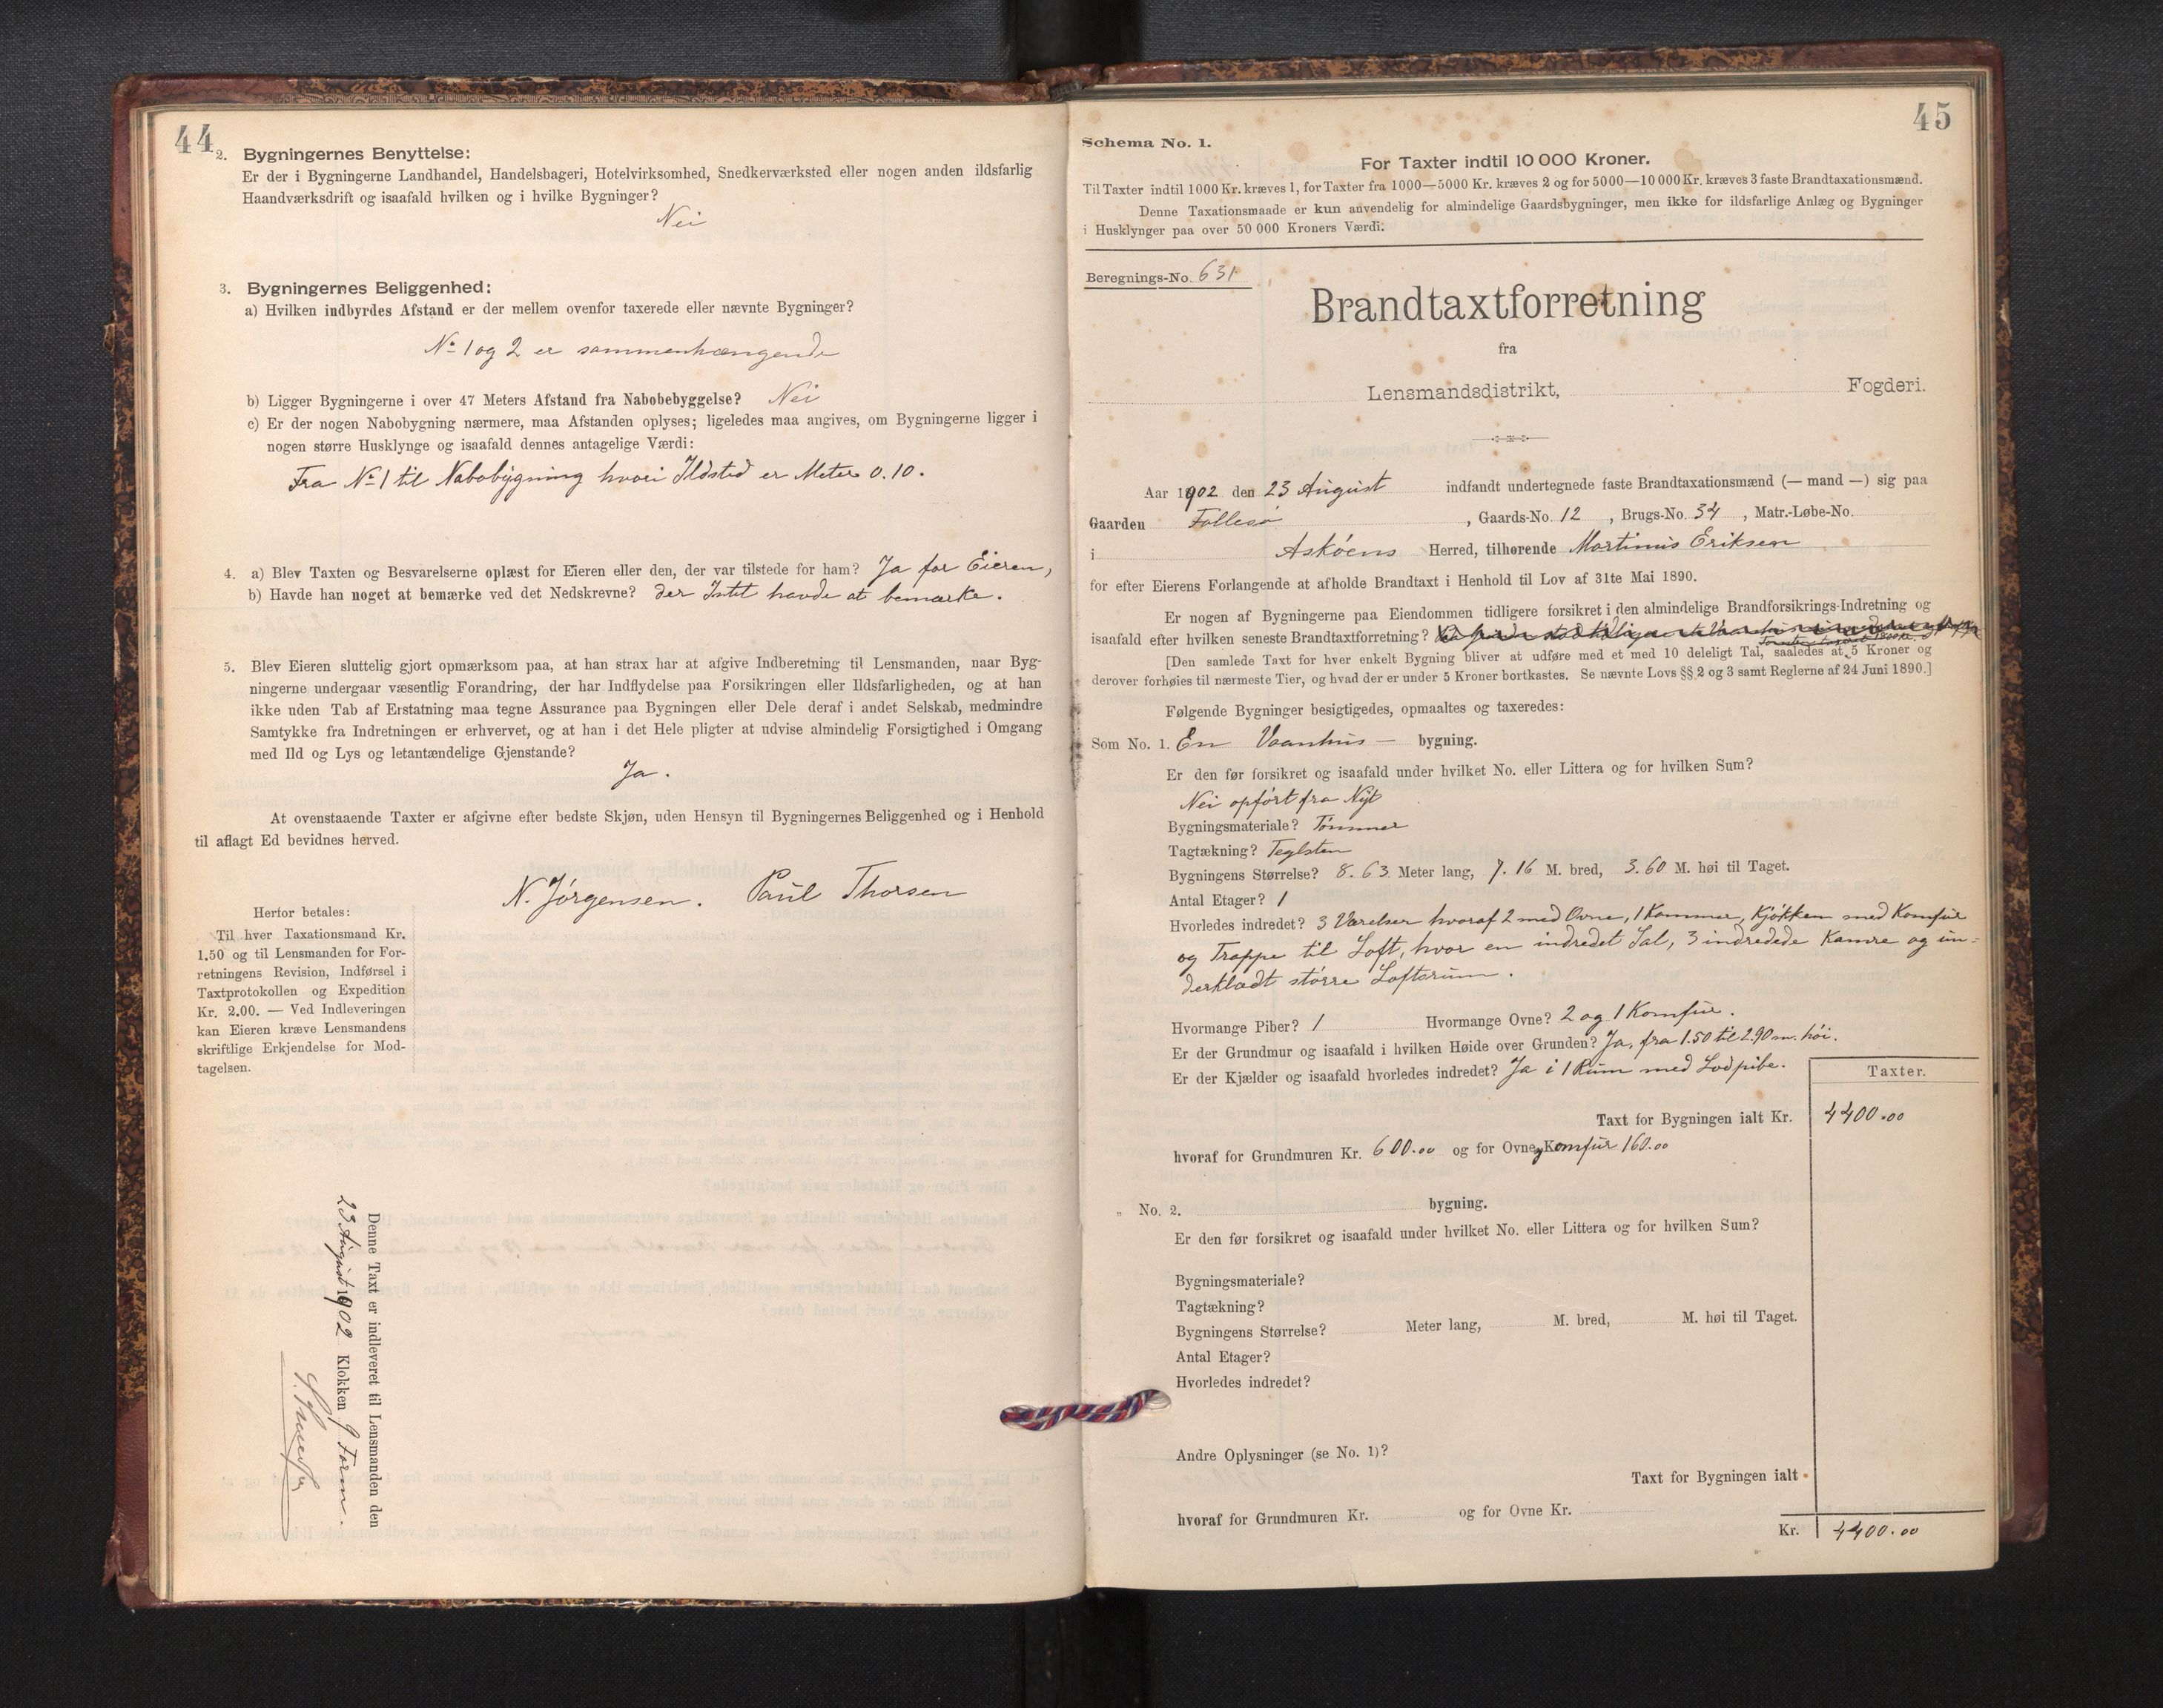 44
2. Bygningernes Benyttelse:
Er der i Bygningerne Landhandel, Handelsbageri, Hotelvirksomhed, Snedkerværksted eller nogen anden ildsfarlig
Haandværksdrift og isaafald hvilken og i hvilke Bygninger?
Nei
3. Bygningernes Beliggenhed:
a) Hvilken indbyrdes Afstand er der mellem ovenfor taxerede eller nævnte Bygninger?
No 1 og 2 er sammenhængende
b) Ligger Bygningerne i over 47 Meters Afstand fra Nabobebyggelse? Nei
c) Er der nogen Nabobygning nærmere, maa Afstanden oplyses; ligeledes maa angives, om Bygningerne ligger i
nogen større Husklynge og isaafald dennes antagelige Værdi:
Fra No 1 til Nabobygning hvori Ildsted er Meter 0.10.
4. a) Blev Taxten og Besvarelserne oplæst for Eieren eller den, der var tilstede for ham? Ja for Eieren,
b) Havde han noget at bemærke ved det Nedskrevne? der Intet havde at bemærke.
5. Blev Eieren sluttelig gjort opmærksom paa, at han strax har at afgive Indberetning til Lensmanden, naar Byg-
ningerne undergaar væsentlig Forandring, der har Indflydelse paa Forsikringen eller Ildsfarligheden, og at han
ikke uden Tab af Erstatning maa tegne Assurance paa Bygningen eller Dele deraf i andet Selskab, medmindre
Samtykke fra Indretningen er erhvervet, og at han i det Hele pligter at udvise almindelig Forsigtighed i Omgang
med Ild og Lys og letantændelige Gjenstande?
Ja.
At ovenstaaende Taxter er afgivne efter bedste Skjøn, uden Hensyn til Bygningernes Beliggenhed og i Henhold
til aflagt Ed bevidnes herved.
N. Jørgensen. Paul Thorsen
Herfor betales:
Til hver Taxationsmand Kr.
1.50 og til Lensmanden for For-
retningens Revision, Indførsel i
Taxtprotokollen og Expedition
Kr. 2.00. — Ved Indleveringen
kan Eieren kræve Lensmandens
skriftlige Erkjendelse for Mod-
tagelsen.
Denne Taxt er indleveret til Lensmanden den
23 August 1902 Klokken 9 Form.
45
Schema No. 1.
For Taxter indtil 10 000 Kroner.
Til Taxter indtil 1000 Kr. kræves 1, for Taxter fra 1000—5000 Kr. kræves 2 og for 5000—10 000 Kr. kræves 3 faste Brandtaxationsmænd.
Denne Taxationsmaade er kun anvendelig for almindelige Gaardsbygninger, men ikke for ildsfarlige Anlæg og Bygninger
i Husklynger paa over 50 000 Kroners Værdi.
Beregnings-No. 631
Brandtaxtforretning
fra
Lensmandsdistrikt, Fogderi.
Aar 1902 den 23 August indfandt undertegnede faste Brandtaxationsmænd (— mand —) sig paa
Gaarden Follesø, Gaards-No. 12, Brugs-No. 34, Matr.-Løbe-No.
i Askøens Herred, tilhørende Martinus Eriksen
for efter Eierens Forlangende at afholde Brandtaxt i Henhold til Lov af 31te Mai 1890.
Er nogen af Bygningerne paa Eiendommen tidligere forsikret i den almindelige Brandforsikrings-Indretning og
isaafald efter hvilken seneste Brandtaxtforretning?
[Den samlede Taxt for hver enkelt Bygning bliver at udføre med et med 10 deleligt Tal, saaledes at 5 Kroner og
derover forhøies til nærmeste Tier, og hvad der er under 5 Kroner bortkastes. Se nævnte Lovs §§ 2 og 3 samt Reglerne af 24 Juni 1890.]
Følgende Bygninger besigtigedes, opmaaltes og taxeredes:
Som No. 1. En Vaanhus — bygning.
Er den før forsikret og isaafald under hvilket No. eller Littera og for hvilken Sum?
Nei opført fra Nyt
Bygningsmateriale? Tømmer
Tagtækning? Teglsten
Bygningens Størrelse? 8.63 Meter lang, 7.16 M. bred, 3.60 M. høi til Taget.
Antal Etager? 1
Hvorledes indredet? 3 Værelser hvoraf 2 med Ovne, 1 Kammer, Kjøkken med Komfur
og Trappe til Loft, hvor en indredet Sal, 3 indredede Kamre og un=
derklædt større Loftsrum.
Hvormange Piber? 1 Hvormange Ovne? 2 og 1 Komfur.
Er der Grundmur og isaafald i hvilken Høide over Grunden? Ja, fra 1.50 til 2.90 m. høi.
Er der Kjælder og isaafald hvorledes indredet? Ja i 1 Rum med Lodpibe.
Taxter.
Taxt for Bygningen ialt Kr. 4400.00
hvoraf for Grundmuren Kr. 600.00 og for Ovne og Komfur 160.00
„ No. 2. bygning.
Er den før forsikret og isaafald under hvilket No. eller Littera og for hvilken Sum?
Bygningsmateriale?
Tagtækning?
Bygningens Størrelse? Meter lang, M. bred, M. høi til Taget.
Antal Etager?
Hvorledes indredet?
Andre Oplysninger (se No. 1)?
Taxt for Bygningen ialt
hvoraf for Grundmuren Kr. og for Ovne Kr.
Kr. 4400.00